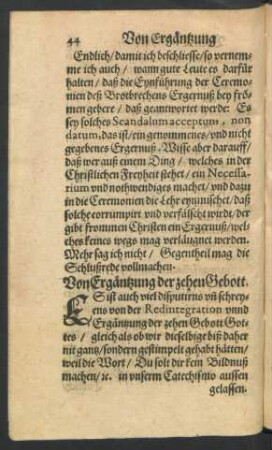 44 Von Ergäntzung
Endlich/ damit ich beschliesse/ so vernem-
me ich auch/ wann gute Leute es darfür
halten/ daß die Eynführung der Ceremo-
nien deß Brotbrechens Ergernuß bey from-
men gebere/ daß geantwortet werde: Es
sey solches Scandalum acceptum, non
datum, das ist/ ein genommenes/ vnd nicht
gegebenes Ergernuß. Wisse aber darauff/
daß wer auß einem Ding/ welches in der
Christlichen Freyheit stehet/ ein Necessa-
rium vnd nothwendiges machet/ vnd dazu
in die Ceremonien die Lehr eynmischet/ daß
solche corrumpirt vnd verfälscht wirdt, der
gibt frommen Christen ein Ergernuß/ wel-
ches keines wegs mag verläugnet werden.
Mehr sag ich nicht/ Gegentheil mag die
Schlußrede vollmachen.
Von Ergäntzung der zehen Gebott.
ES ist auch viel disputirns vñ schrey-
ens von der Redintegration vnnd
Ergäntzung der zehen Gebott Got-
tes/ gleich als ob wir dieselbige biß daher
nit gantz/ sondern gestimpelt gehabt hätten/
weil die Wort/ Du solt dir kein Bildnuß
machen/ ꝛc. in vnserm Catechismo aussen
gelassen.